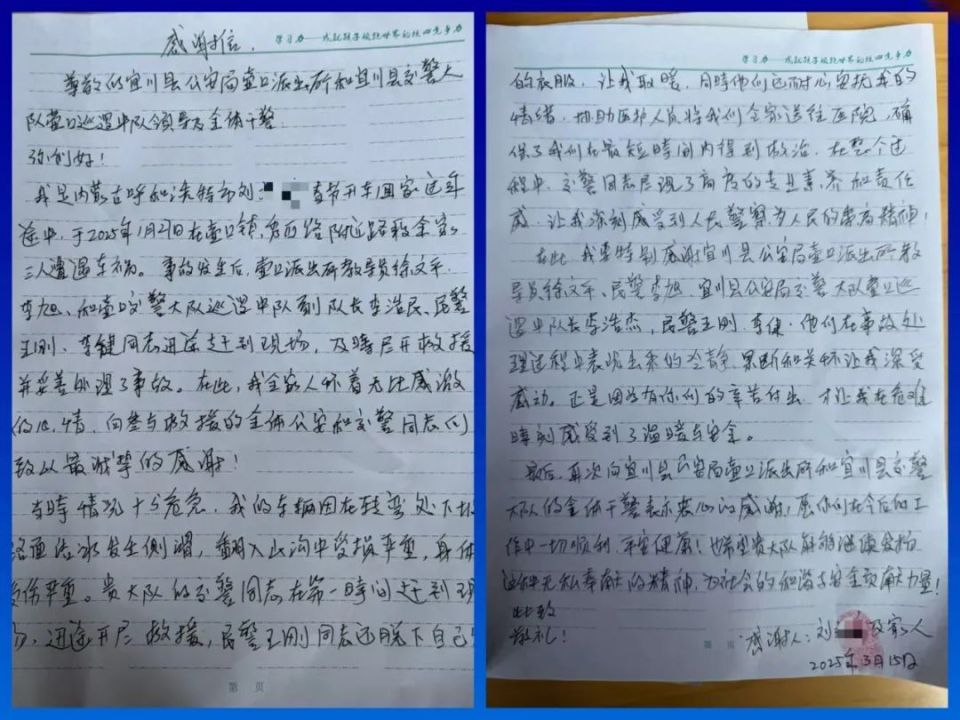 感谢信.
学习力——成就孩子极致世界的核心竞争力
尊敬的宜川县公安局壶口派出所和宜川县交警大
队壶口巡逻中队领导及全体干警
你们好！
我是内蒙古呼和浩特市刘 春节开车回家返程
途中,于2025年1月21日在壶口镇 路附近路段全家
三人遭遇车祸。事故发生后,壶口派出所教导员徐文平、
李旭、和壶口交警大队巡逻中队副队长李浩民、民警
王刚、李健同志迅速赶到现场,及时展开救援
并妥善处理了事故。在此,我全家人怀着无比感激
的心情,向参与救援的全体公安和交警同志们
致以最诚挚的感谢！
当时情况十分危急,我的车辆因在转弯处下坡
路面结冰发生侧滑,翻入山沟中受损严重,身体
负伤严重。贵大队的交警同志在第一时间赶到现
场,迅速开展救援,民警王刚同志还脱下自己
第 页
学习力——成就孩子极致世界的核心竞争力
的衣服,让我取暖,同时他们还耐心安抚我的
情绪,协助医护人员将我们全家送往医院,确
保了我们在最短时间内得到救治。在整个过
程中,交警同志展现了高度的专业素养和责任
感,让我深刻感受到人民警察为人民的崇高精神！
在此,我要特别感谢宜川县公安局壶口派出所教
导员徐文平、民警李旭,宜川县公安局交警大队壶口巡
逻中队长李浩杰,民警王刚、李健,他们在事故处
理过程中表现出来的冷静、果断和关怀让我深受
感动。正是因为有你们的辛苦付出,才让我在危难
时刻感受到了温暖与安全。
最后,再次向宜川县公安局壶口派出所和宜川县交警
大队的全体干警表示衷心的感谢,愿你们在今后的工
作中一切顺利,平安健康！也希望贵大队能够继续发扬
这种无私奉献的精神,为社会的和谐与安全贡献力量！
此致
敬礼！
感谢人:刘 及家人
2025年3月15日